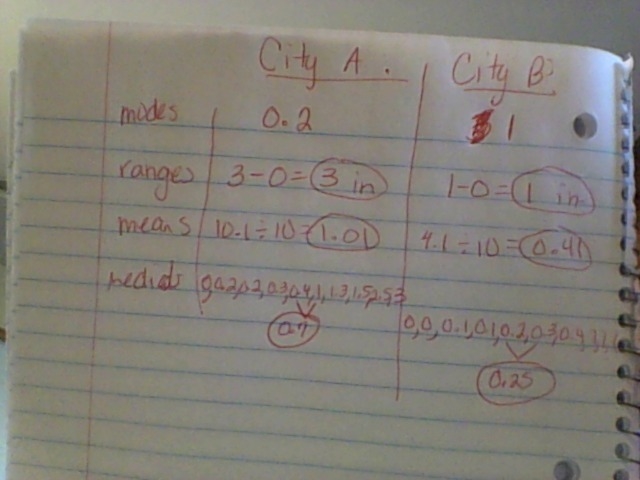 City A. City B.
modes 0.2 1
ranges 3-0=3 in 1-0=1 in
means 10.1÷10=1.01 4.1÷10=0.41
0,0.2,0.2,0.3,0.4,1,1.3,1.5,2.5,3
0.7 0,0,0.1,0.1,0.2,0.3,0.4,1,1,1
0.25